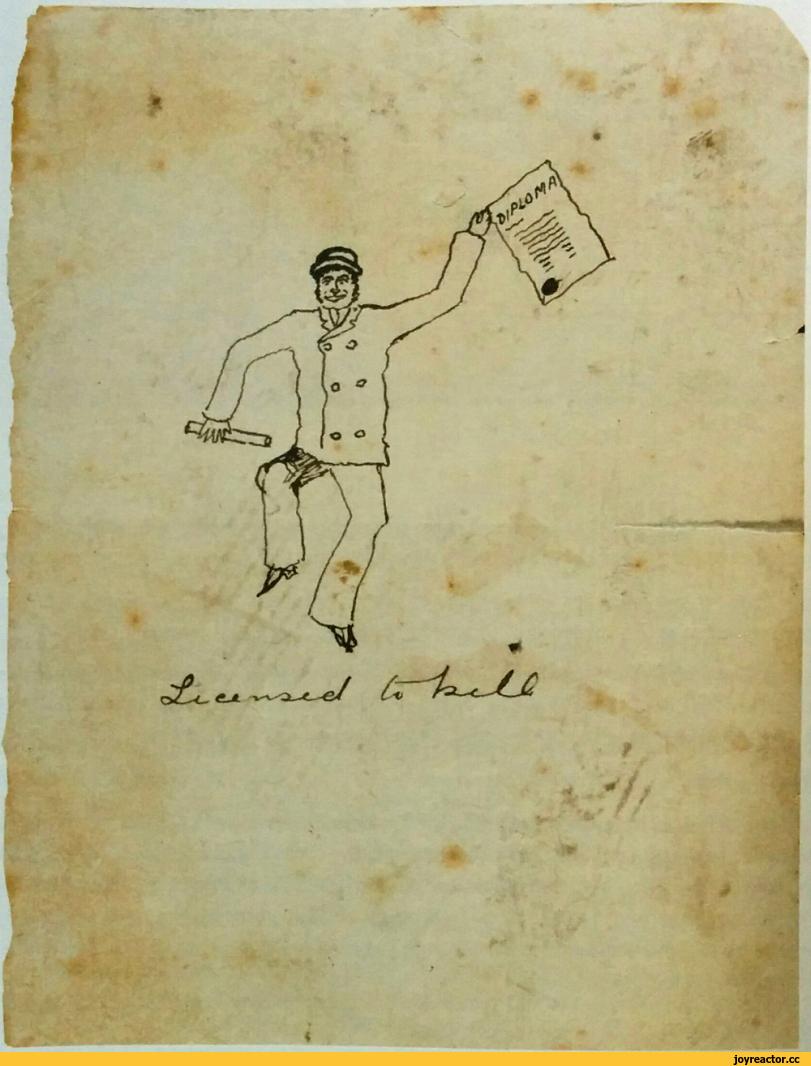 DIPLOMA
Licensed to kill
joyreactor.cc